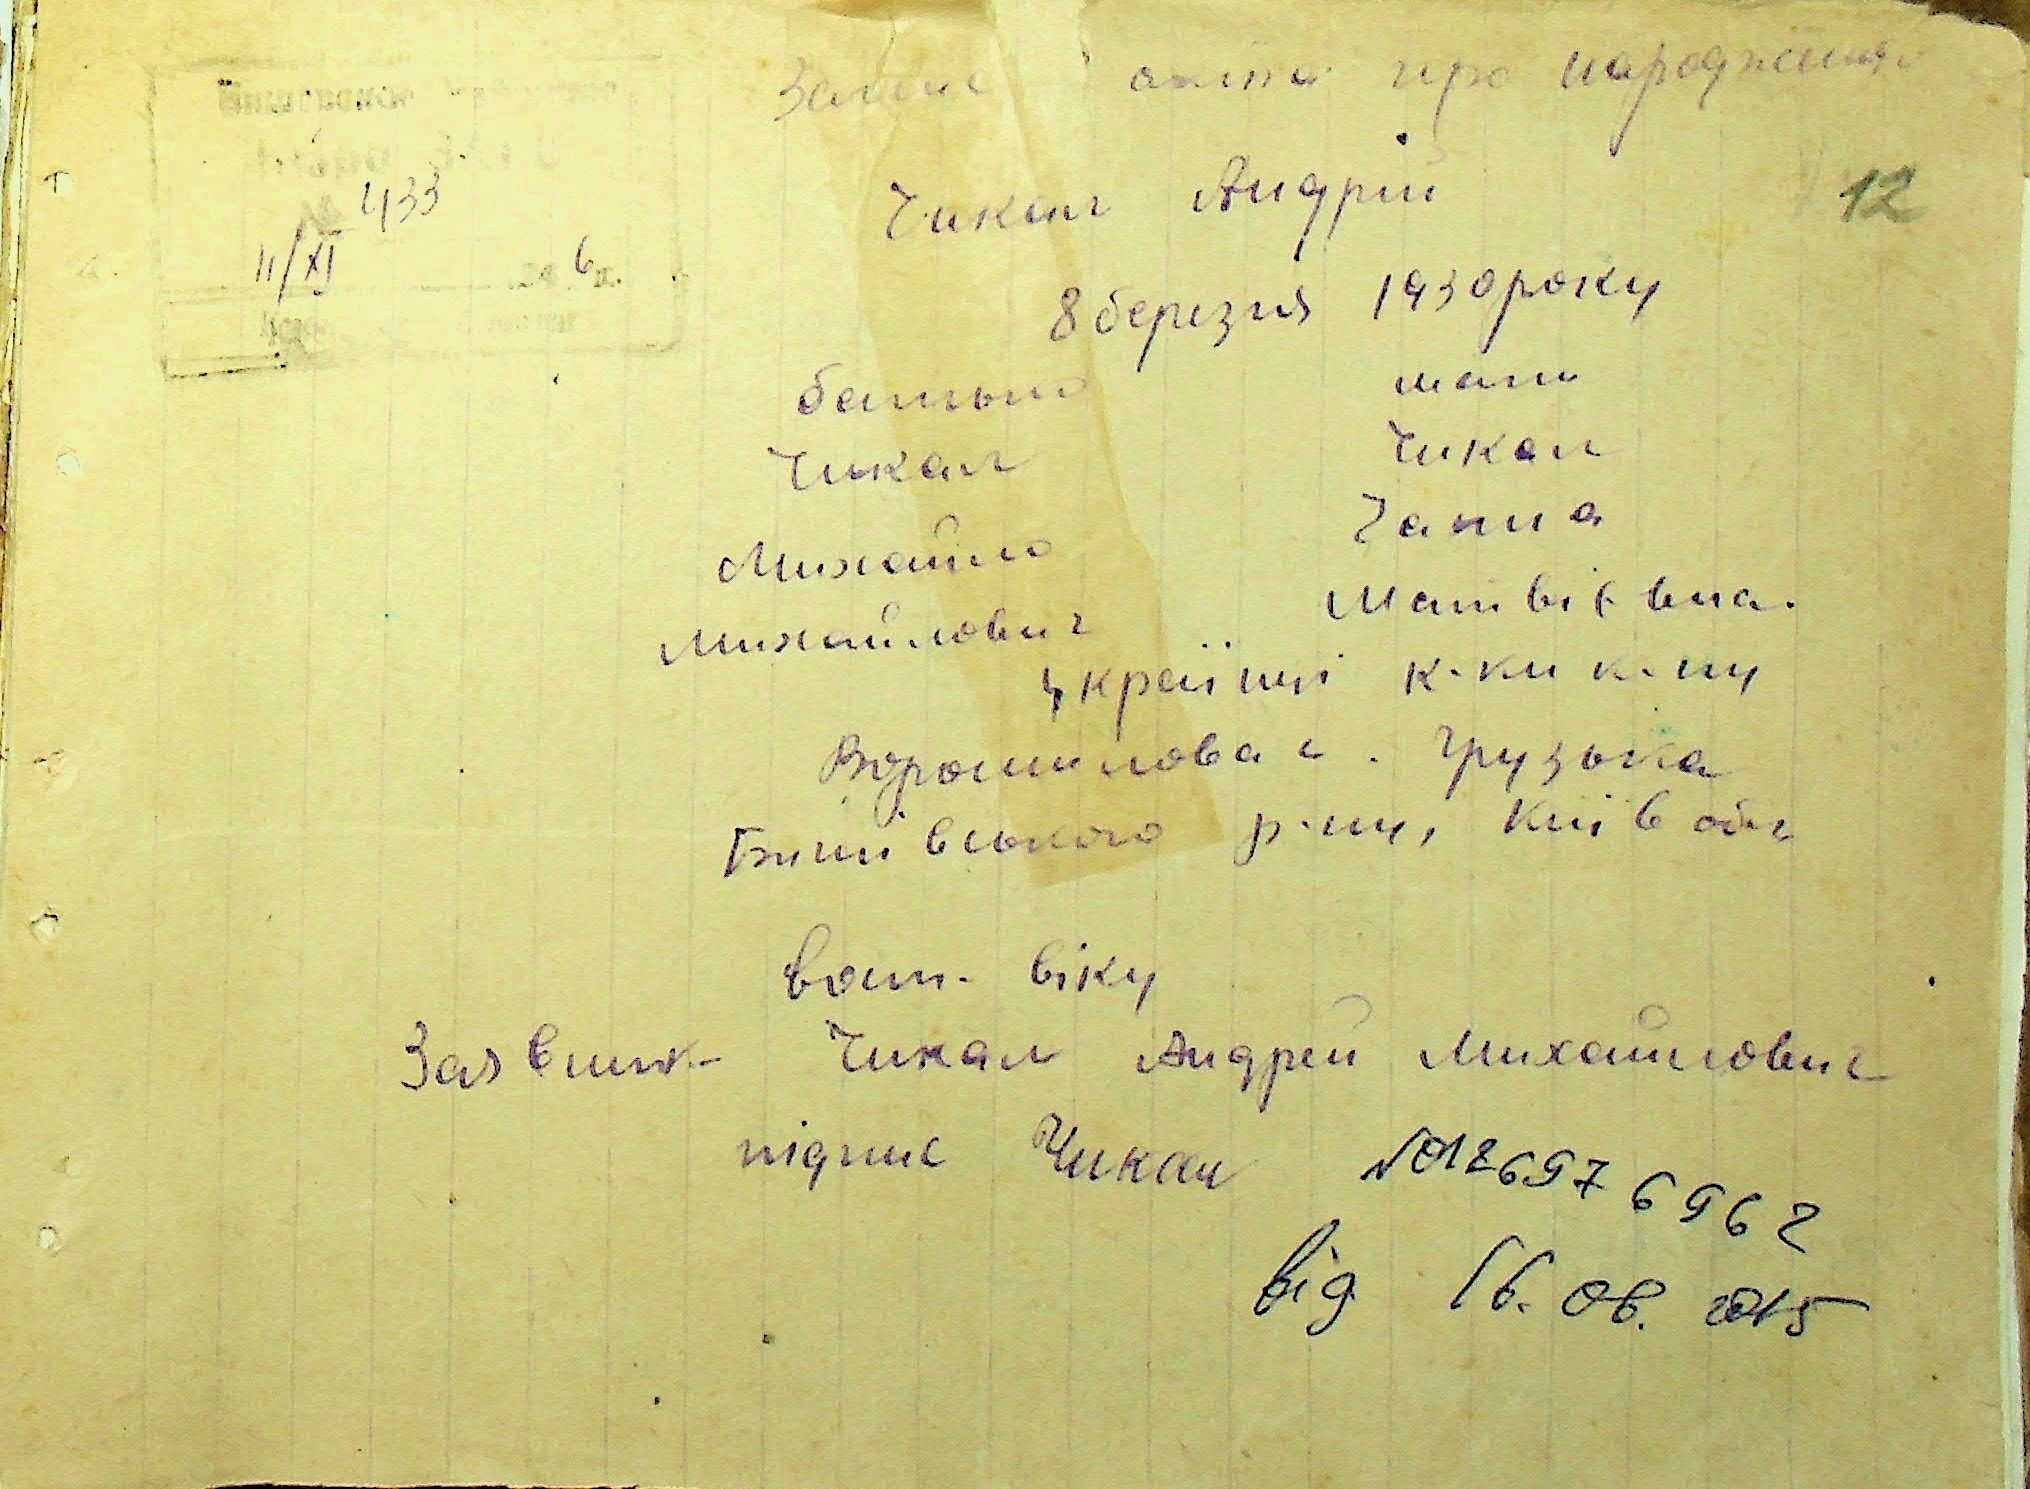 Запис акта про народження
Чикал Андрій
12
433
11/XI
6
8 березня 1930 року
батько мати
Чикал Чикал
Михайло Ганна
Михайлович Матвіївна.
українці к-ки к-пу
Ворошилова с. Грузька
Бишівського р-ну, Київ обл
вост. віку
Заявник Чикал Андрей Михайлович
підпис Чикал
від 16.06.2015